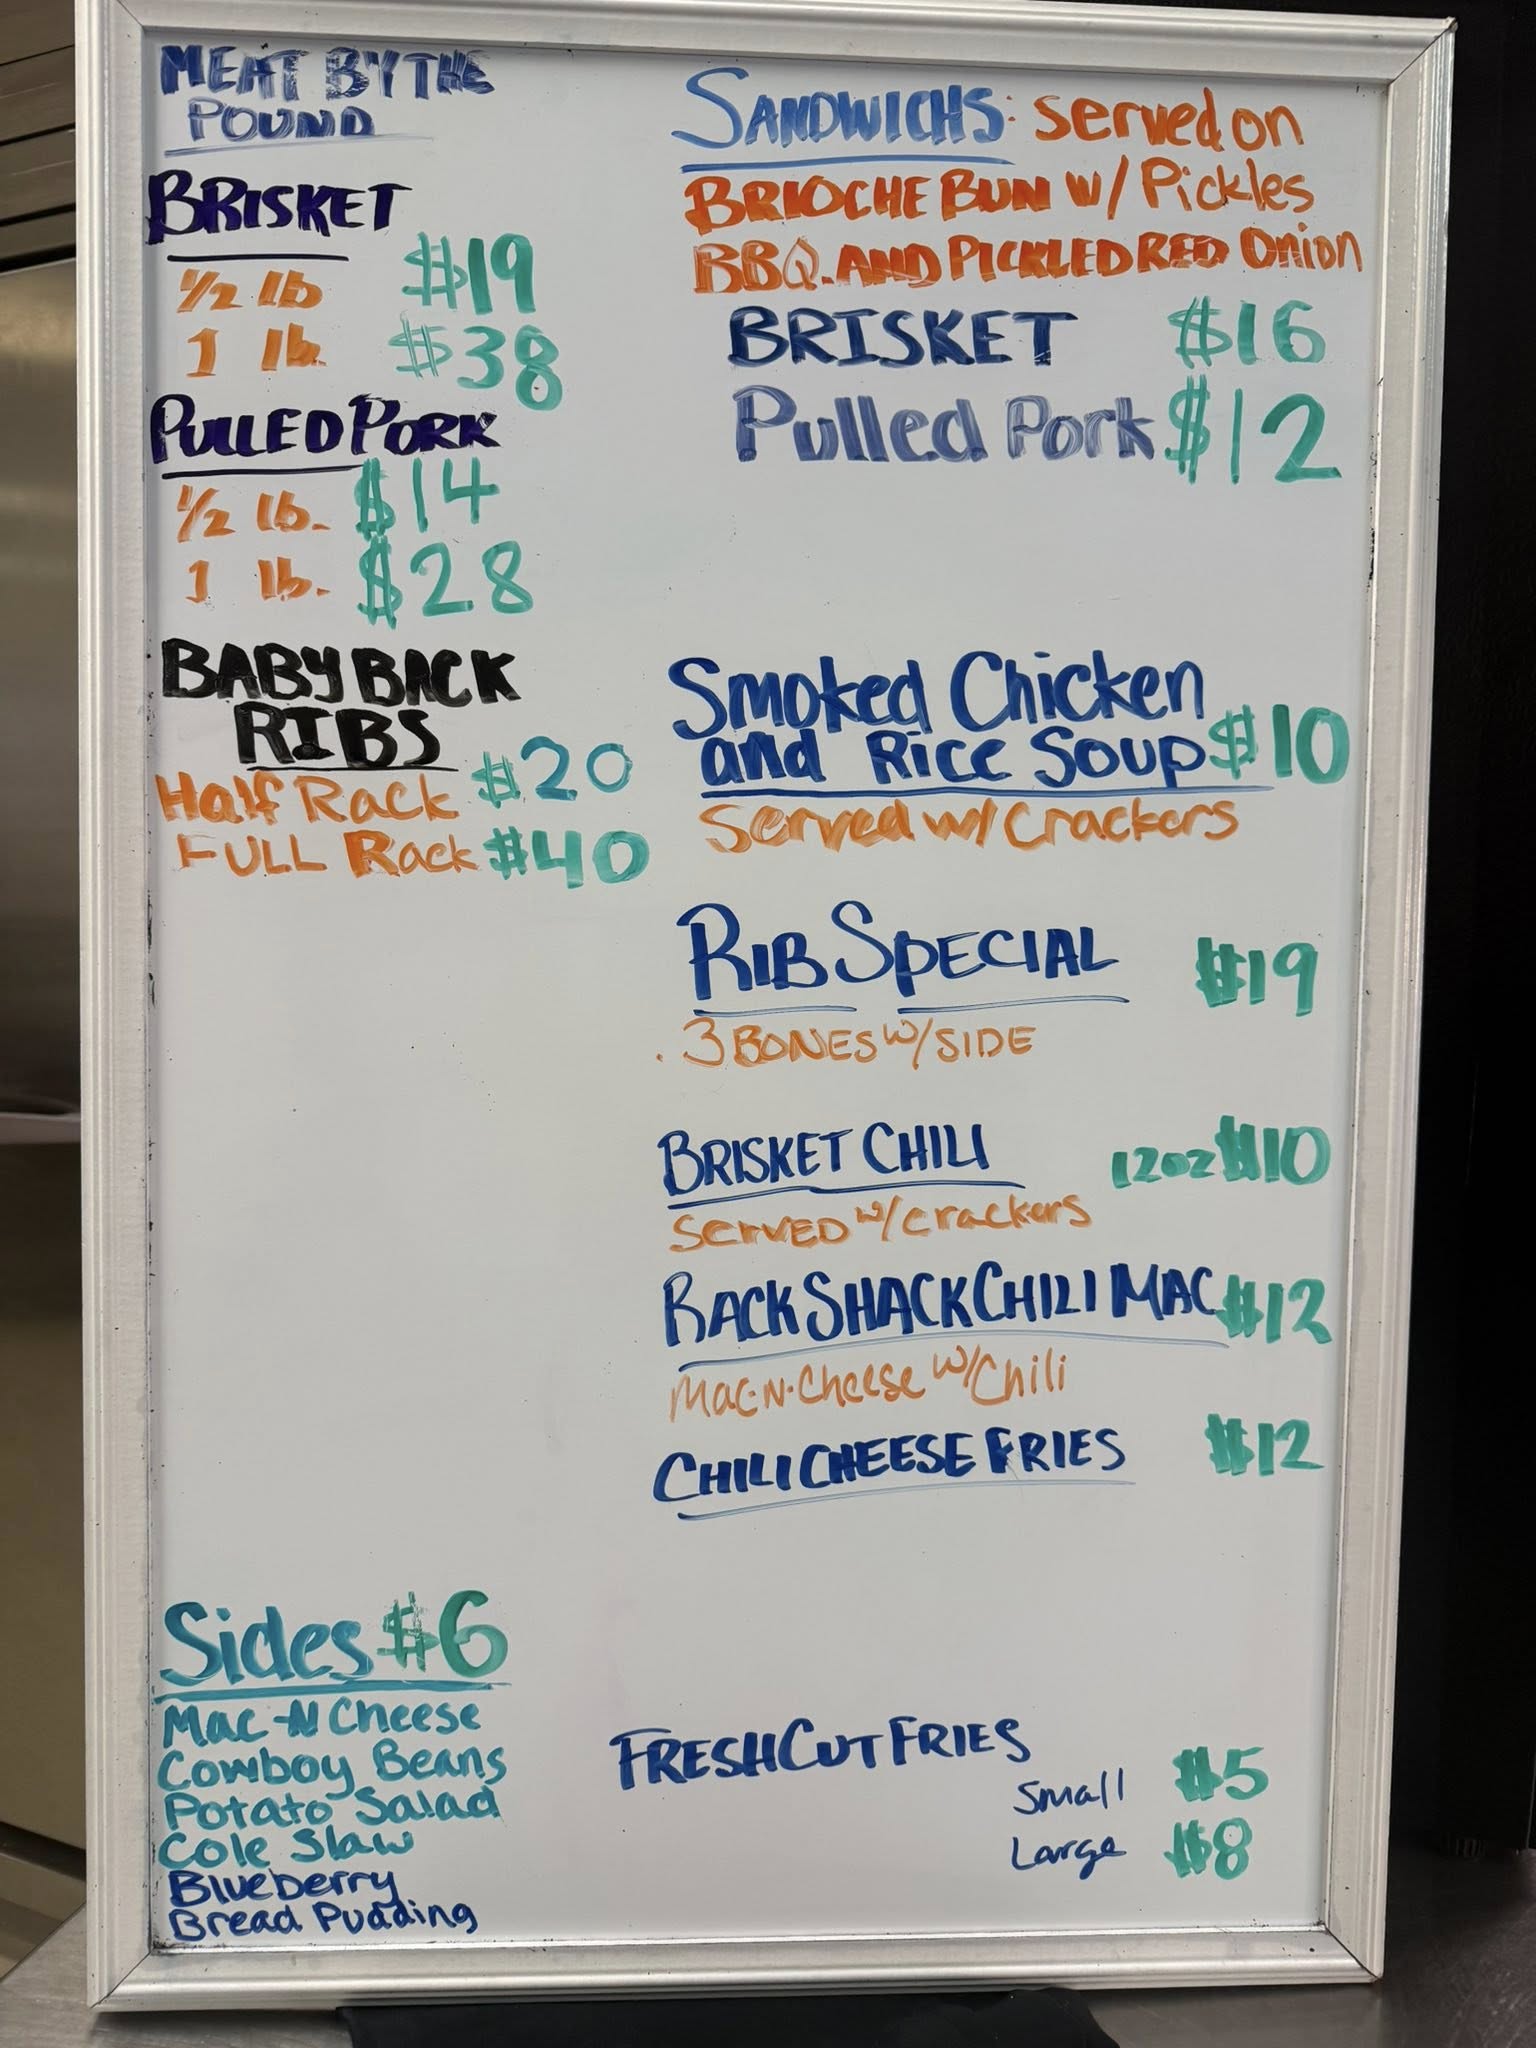 MEAT BY THE
POUND
BRISKET
1/2 lb $19
1 lb. $38
PULLED PORK
1/2 lb. $14
1 lb. $28
BABY BACK
RIBS
Half Rack $20
FULL Rack $40
Sides $6
Mac-N Cheese
Cowboy Beans
Potato Salad
Cole Slaw
Blueberry
Bread Pudding
SANDWICHS: served on
BRIOCHE BUN w/ Pickles
BBQ. AND PICKLED RED Onion
BRISKET $16
Pulled Pork $12
Smoked Chicken
and Rice Soup $10
Served w/ Crackers
RIB SPECIAL $19
. 3 BONES w/ SIDE
BRISKET CHILI 12oz $10
SERVED w/ crackers
RACK SHACK CHILI MAC $12
Mac-N-Cheese w/ Chili
CHILI CHEESE FRIES $12
FRESH CUT FRIES
Small $5
Large $8